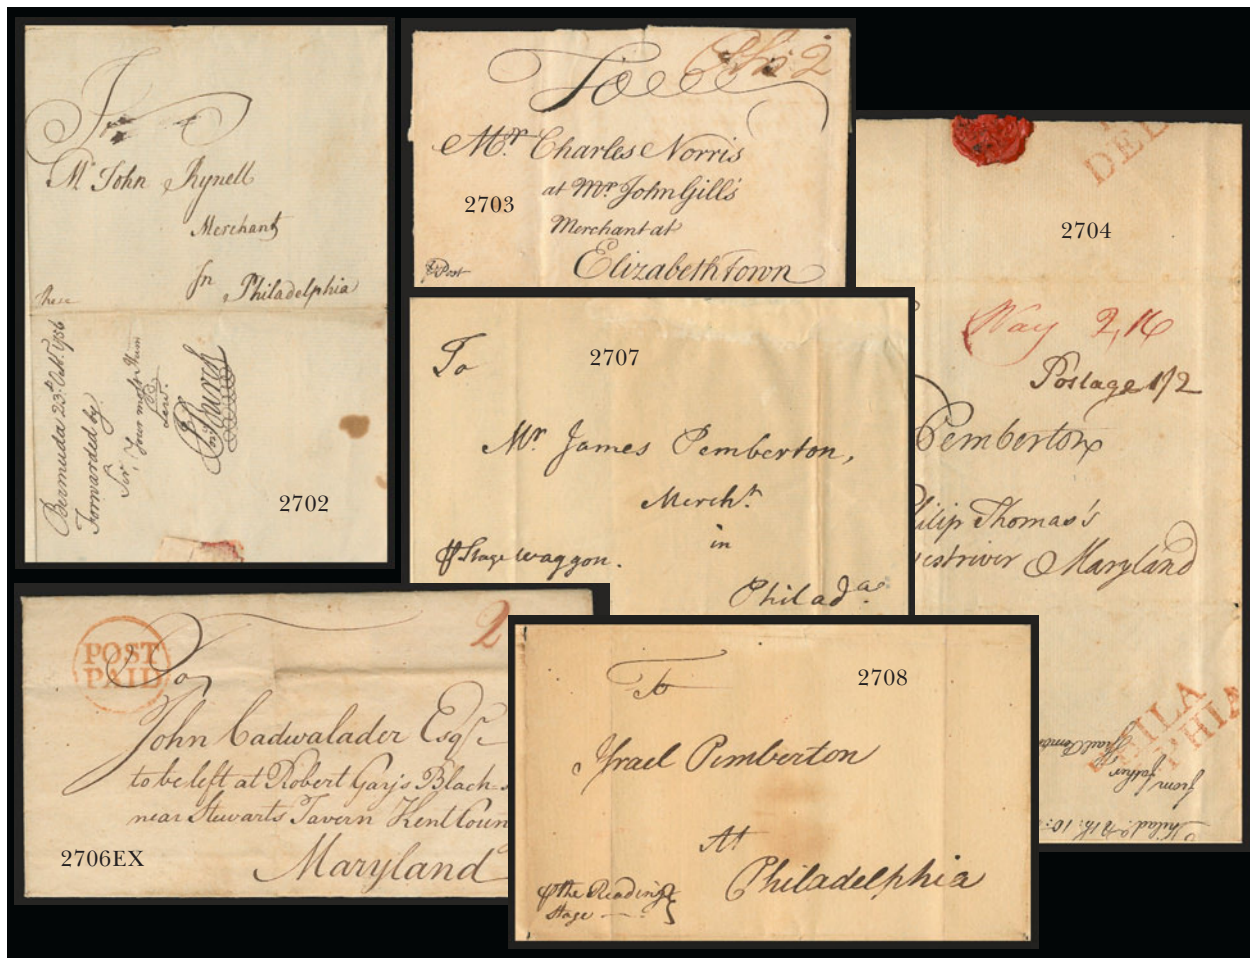 To
Mr John Rynell
Merchant
In Philadelphia
These
Bermuda 23d Octr. 1756
Forwarded by
Sir, Your most Hum
Serv.
2702
Phi 2
To
Mr. Charles Norris
at Mr John Gill's
2703
Merchant at
Elizabethtown
Post
DEL
2704
Way 2,16
Postage 1/2
Pemberton
ilip Thomas's
estriver Maryland
HILA
PHIA
from father
Israel Pemb
Philad.
To
2707
Mr James Pemberton,
Mercht.
in
Stage waggon.
Philada.
2
POST
PAID
To
John Cadwalader Esqr
to be left at Robert Gay's Black-s
near Stewarts Tavern Kent Coun
2706EX
Maryland
To
2708
Israel Pemberton
At
Philadelphia
the Reading
Stage